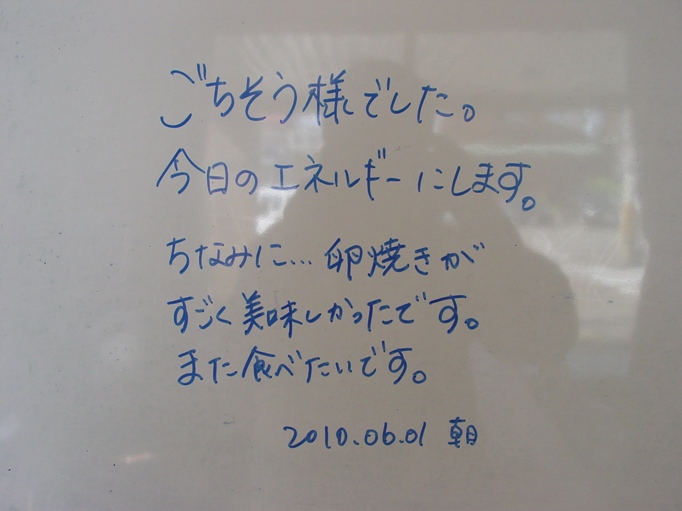 ごちそう様でした。
今日のエネルギーにします。
ちなみに...卵焼きが
すごく美味しかったです。
また食べたいです。
2010.06.01 朝